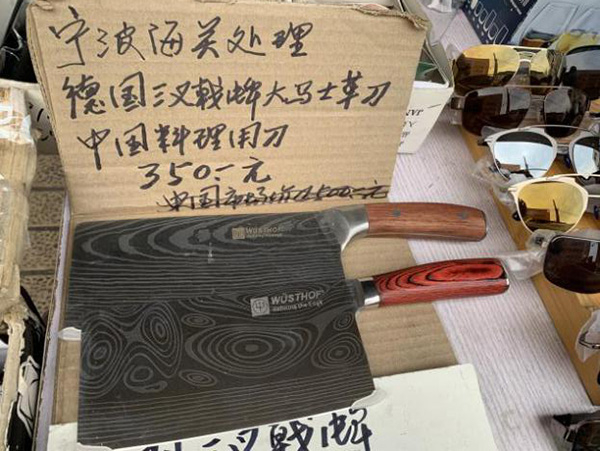 宁波海关处理
德国三叉戟牌大马士革刀
中国料理用刀
350.一元
中国市场价
WÜSTHOF
WÜSTHOF
Defining the Edge
三叉戟牌